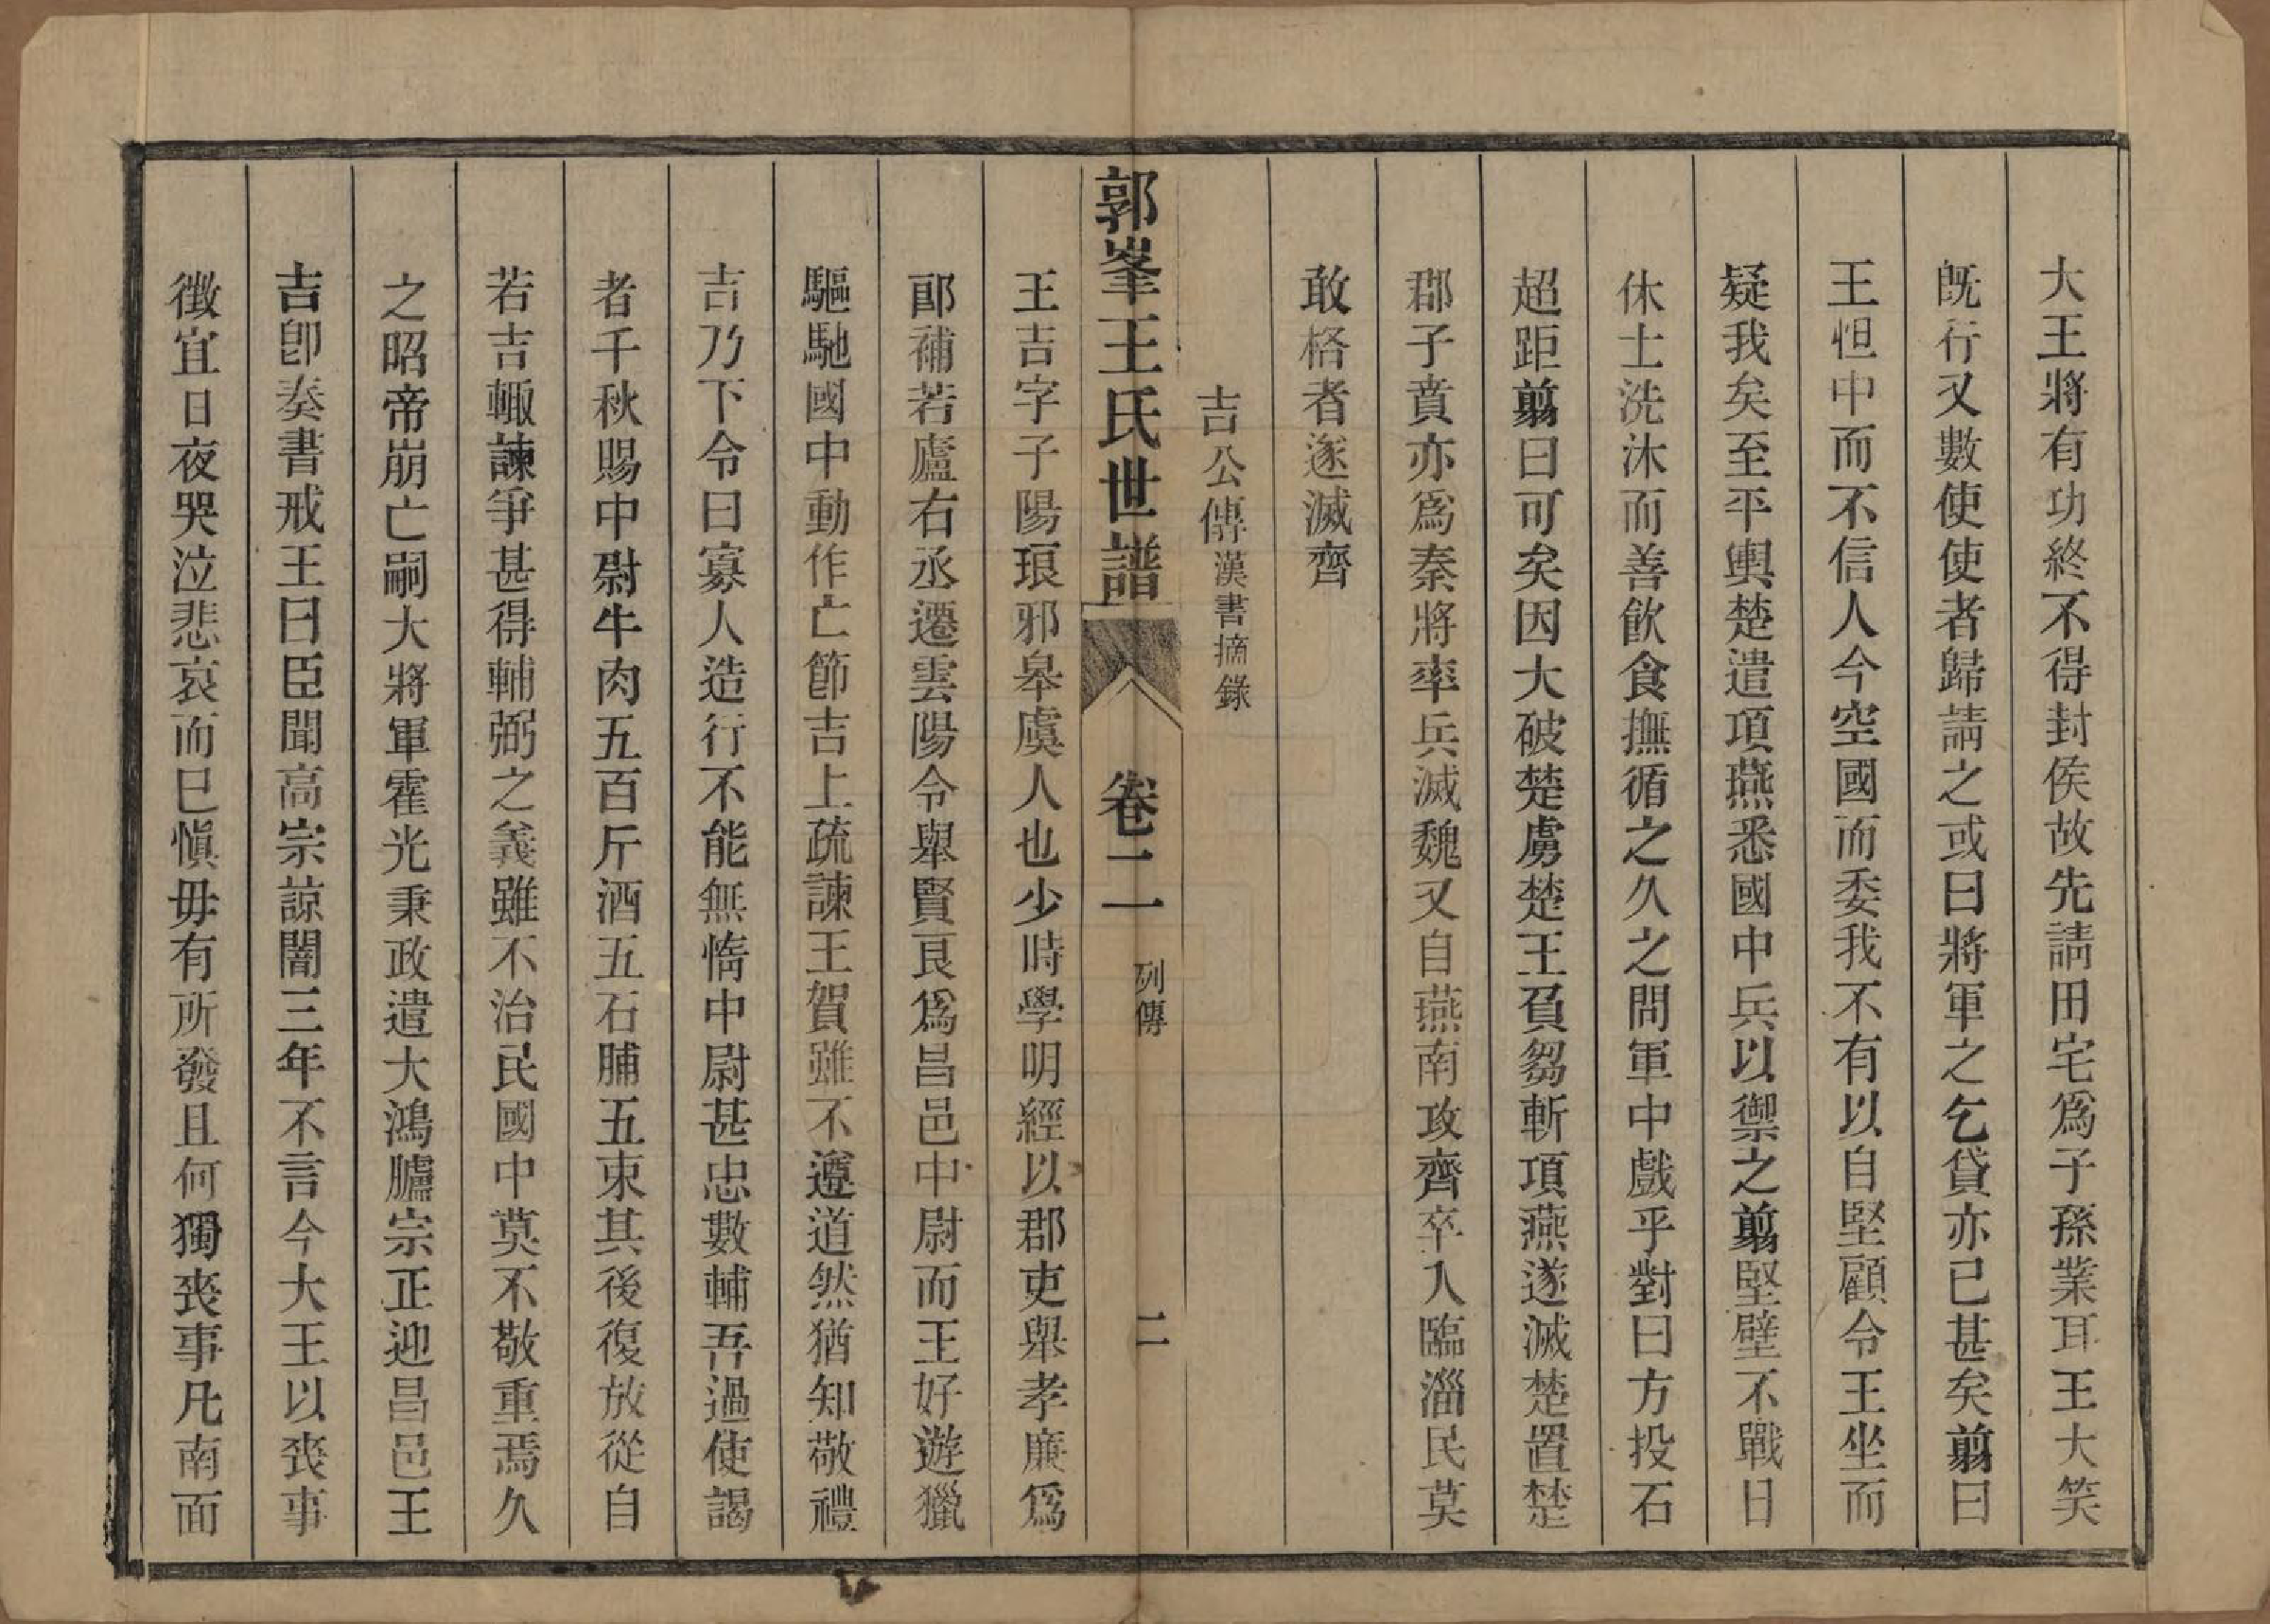 大王將有功終不得封侯故先請田宅爲子孫業耳王大笑
既行又數使使者歸請之或曰將軍之乞貸亦已甚矣翦曰
王怚中而不信人今空國而委我不有以自堅顧令王坐而
疑我矣至平輿楚遣項燕悉國中兵以禦之翦堅壁不戰日
休士洗沐而善飲食撫循之久之問軍中戲乎對曰方投石
超距翦曰可矣因大破楚虜楚王負芻斬項燕遂滅楚置楚
郡子賁亦爲秦將率兵滅魏又自燕南攻齊卒入臨淄民莫
敢格者遂滅齊
吉公傳漢書摘錄
郭峯王氏世譜 卷二 列傳 二
王吉字子陽琅邪皋虞人也少時學明經以郡吏舉孝廉爲
郎補若廬右丞遷雲陽令舉賢良爲昌邑中尉而王好遊獵
驅馳國中動作亡節吉上疏諫王賀雖不遵道然猶知敬禮
吉乃下令曰寡人造行不能無惰中尉甚忠數輔吾過使謁
者千秋賜中尉牛肉五百斤酒五石脯五束其後復放從自
若吉輒諫爭甚得輔弼之義雖不治民國中莫不敬重焉久
之昭帝崩亡嗣大將軍霍光秉政遣大鴻臚宗正迎昌邑王
吉卽奏書戒王曰臣聞高宗諒闇三年不言今大王以喪事
徵宜日夜哭泣悲哀而已愼毋有所發且何獨喪事凡南面